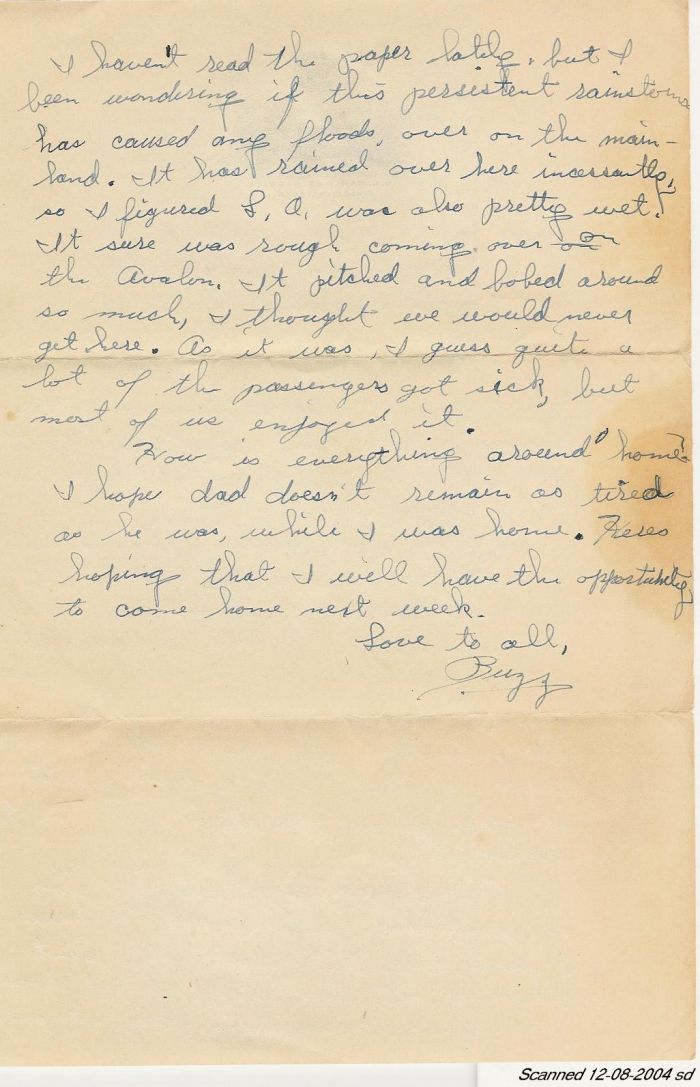 I haven't read the paper lately, but I
been wondering if this persistent rainstorm
has caused any floods, over on the main-
land. It has rained over here incessantly,
so I figured L. A. was also pretty wet.
It sure was rough coming over on on
the Avalon. It pitched and bobed around
so much, I thought we would never
get here. As it was, I guess quite a
lot of the passengers got sick, but
most of us enjoyed it.
How is everything around home?
I hope dad doesn't remain as tired
as he was, while I was home. Heres
hoping that I will have the opportunity,
to come home next week.
Love to all,
Buzz
Scanned 12-08-2004 sd